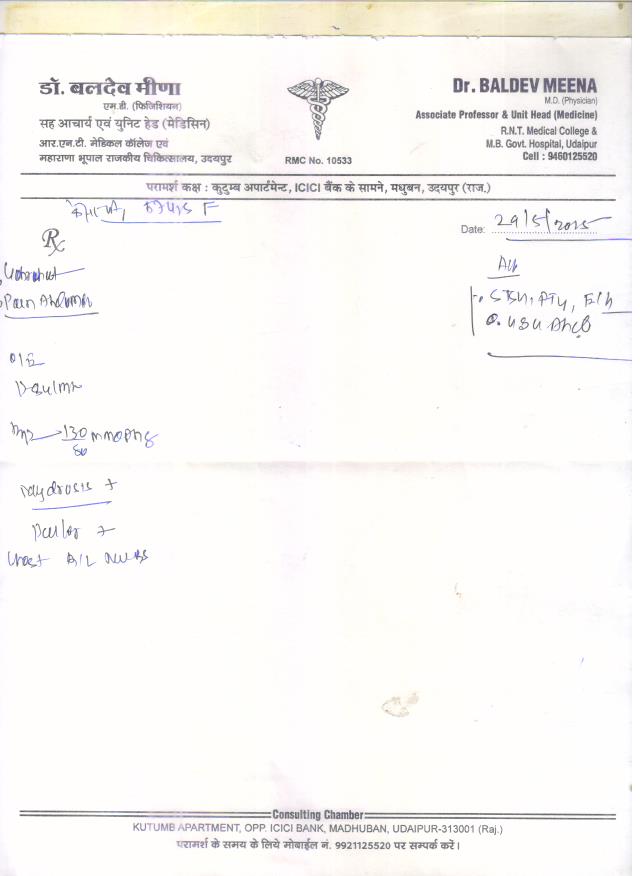 डॉ. बलदेव मीणा
एम.डी. (फिजिशियन)
सह आचार्य एवं यूनिट हेड (मेडिसिन)
आर.एन.टी. मेडिकल कॉलेज एवं
महाराणा भूपाल राजकीय चिकित्सालय, उदयपुर
RMC No. 10533
Dr. BALDEV MEENA
M.D. (Physician)
Associate Professor & Unit Head (Medicine)
R.N.T. Medical College &
M.B. Govt. Hospital, Udaipur
Cell : 9460125520
परामर्श कक्ष : कुटुम्ब अपार्टमेन्ट, ICICI बैंक के सामने, मधुबन, उदयपुर (राज.)
F
Date: 29/5/2015
Rx
Pain Abdomen
O/E
130 mmofHg
80
+
Pallor +
Chest B/L
Consulting Chamber
KUTUMB APARTMENT, OPP. ICICI BANK, MADHUBAN, UDAIPUR-313001 (Raj.)
परामर्श के समय के लिये मोबाईल नं. 9921125520 पर सम्पर्क करें।